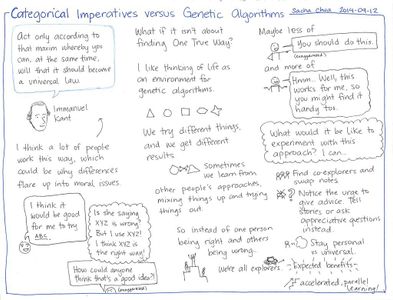 Categorical Imperatives versus Genetic Algorithms
Sacha Chua 2014-09-12
Act only according
to that maxim whereby you
can, at the same time,
will that it should become
a universal law.
Immanuel
Kant
I think a lot of people
work this way, which
could be why differences
flare up into moral issues.
I think it
would be good
for me to try
ABC.
Is she saying
XYZ is wrong?
But I use XYZ!
I think XYZ is
the right way!
How could anyone
think that's a good idea?
(exaggerated)
What if it isn't about
finding One True Way?
I like thinking of life as
an environment for
genetic algorithms.
We try different things,
and we get different
results.
Sometimes
we learn from
other people's approaches,
mixing things up and trying
things out.
So instead of one person
being right and others
being wrong...
We're all explorers.
Maybe less of
You should do this.
(exaggerated)
and more of
Hmm... Well, this
works for me, so
you might find it
handy too.
What would it be like to
experiment with this
approach? I can...
Find co-explorers and
swap notes.
Notice the urge to
give advice. Tell
stories or ask
appreciative questions
instead.
Stay personal
vs universal.
Expected benefits:
accelerated, parallel
learning!